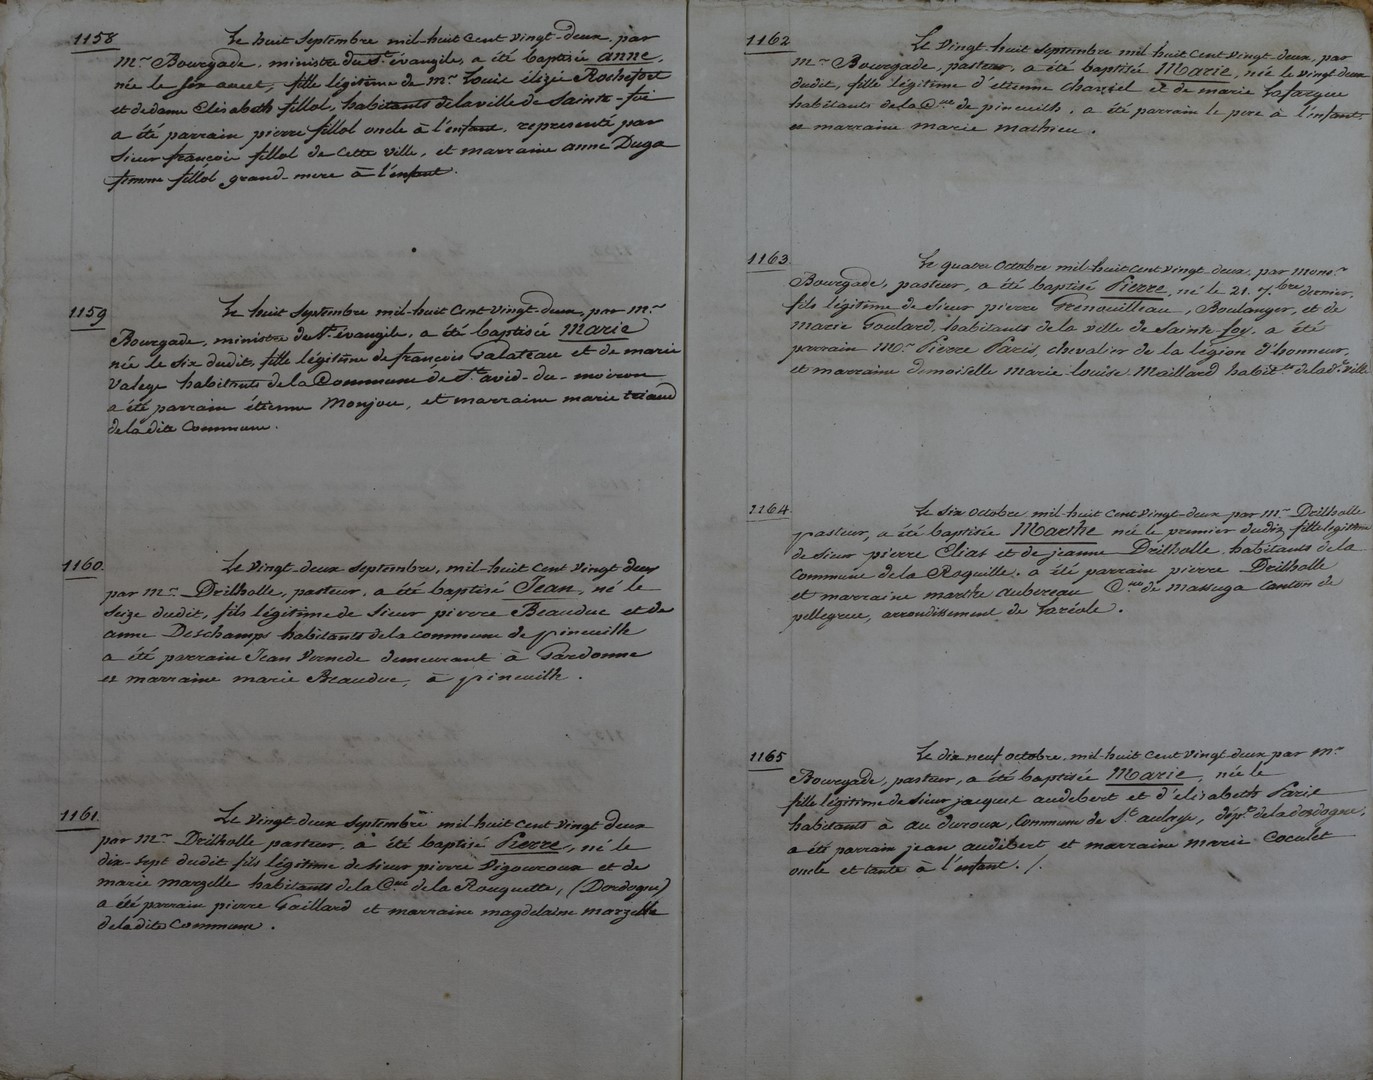 1158
Le huit Septembre mil-huit Cent vingt-deux, par
mr Bourgade, ministre du St évangile, a été baptisée anne,
née le aout, fille légitime de mr Louis élizée Rochefort
et de dame Elisabeth fillol, habitants de la ville de Sainte-foi
a été parrain pierre fillol oncle à l'enfant, representé par
Sieur françois fillol de Cette ville, et marraine anne Duga
femme fillol grand-mere à l'enfant.
1159
Le huit Septembre mil-huit Cent vingt-deux, par mr
Bourgade, ministre du St évangile, a été baptisée Marie
née le Six dudit, fille légitime de françois Galateau et de marie
Valege habitants de la Commune de St avid-du-moiron
a été parrain étienne Monjou, et marraine marie triaud
de la dite Commune.
1160
Le vingt-deux Septembre, mil-huit Cent vingt deux
par mr Drilholle, pasteur, a été baptisé Jean, né le
Seize dudit, fils légitime de Sieur pierre Beauduc et de
anne Deschamps habitants de la commune de pineuilh
a été parrain Jean Vernede demeurant à Gardonne
et marraine marie Beauduc, à pineuilh.
1161
Le vingt-deux Septembre mil-huit Cent vingt deux
par mr Drilholle pasteur, à été baptisé Pierre, né le
dix-Sept dudit fils légitime de Sieur pierre Vigouroux et de
marie marzelle habitants de la Cne de la Rouquette, (Dordogne)
a été parrain pierre Gaillard et marraine magdelaine marzelle
de la dite Commune.
1162
Le Vingt huit Septembre mil huit Cent vingt deux, par
mr Bourgade, pasteur, a été baptisée Marie, née le vingt deux
dudit, fille légitime d'etienne Charriel et de marie Lafargue
habitants de la Cne de pineuilh, a été parrain le pere à l'enfant
et marraine marie mathieu.
1163
Le quatre Octobre mil-huit Cent vingt-deux, par monsr
Bourgade, pasteur, a été baptisé Pierre, né le 21. 7.bre dernier,
fils légitime de Sieur pierre Grenouilleau, Boulanger, et de
Marie Goulard, habitants de la ville de Sainte foy, a été
parrain Mr Pierre Paris, chevalier de la légion d'honneur,
et marraine demoiselle Marie-Louise Maillard habit.te de la d.e ville
1164
Le Six octobre mil-huit Cent vingt-deux par mr Drilholle
pasteur, a été baptisée Marthe née le premier dudit, fille légitime
de Sieur pierre Elias et de jeanne Drilholle, habitants de la
Commune de la Roquille. a été parrain pierre Drilholle
et marraine marthe aubereau Cne de massuga Canton de
pellegrue, arrondissement de Laréole.
1165
Le dix neuf octobre, mil-huit Cent vingt deux par mr
Bourgade, pasteur, a été baptisée Marie, née le
fille légitime de Sieur jacques audebert et d'elisabeth Paris
habitants à au duroux, Commune de St aulaye, dépt de la dordogne,
a été parrain jean audibert et marraine marie Coculet
oncle et tante à l'enfant. /.